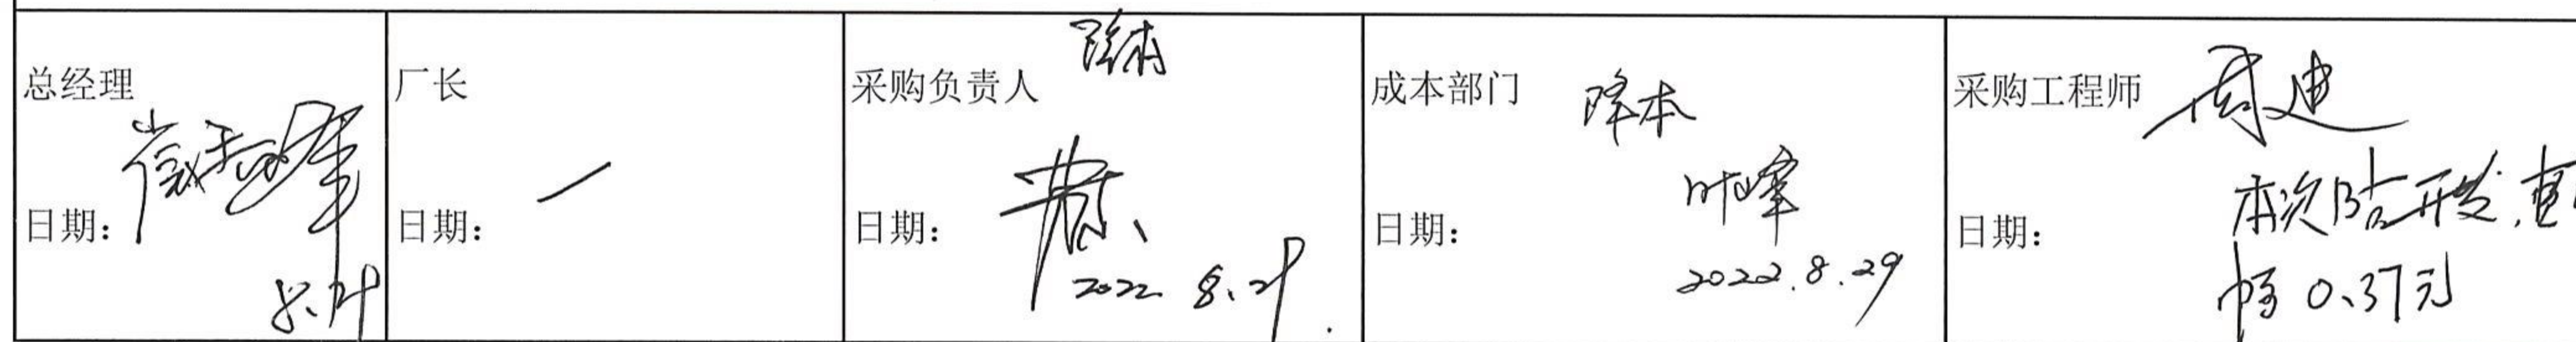 总经理
日期：
8.29
厂长
日期：
—
采购负责人
降本
日期：
2022.8.29
成本部门
降本
日期：
叶峰
2022.8.29
采购工程师
周迪
日期：
本次陆开发,
幅0.37元